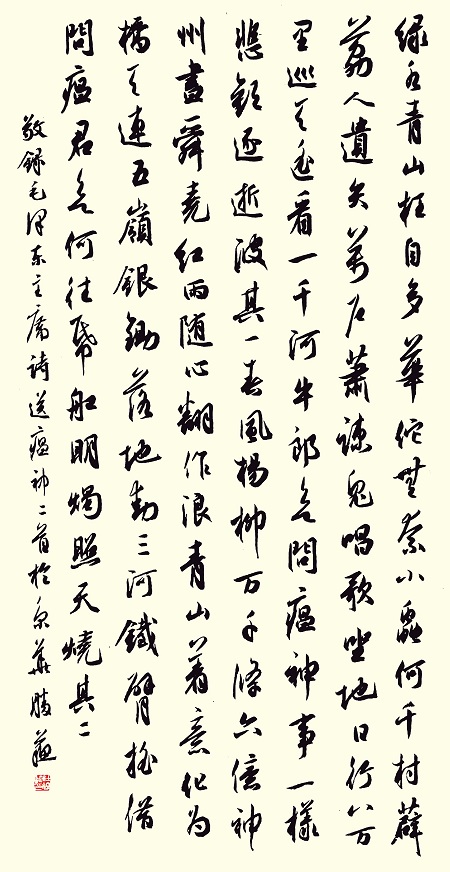 绿水青山枉自多華佗無奈小蟲何千村薜
荔人遺矢萬户蕭疎鬼唱歌坐地日行八万
里巡天遥看一千河牛郎欲問瘟神事一樣
悲歡逐逝波其一春風楊柳万千條六億神
州盡舜堯紅雨随心翻作浪青山着意化为
橋天連五嶺銀鋤落地動三河鐵臂摇借
問瘟君欲何往帋船明燭照天燒其二
敬録毛泽东主席詩送瘟神二首於京華